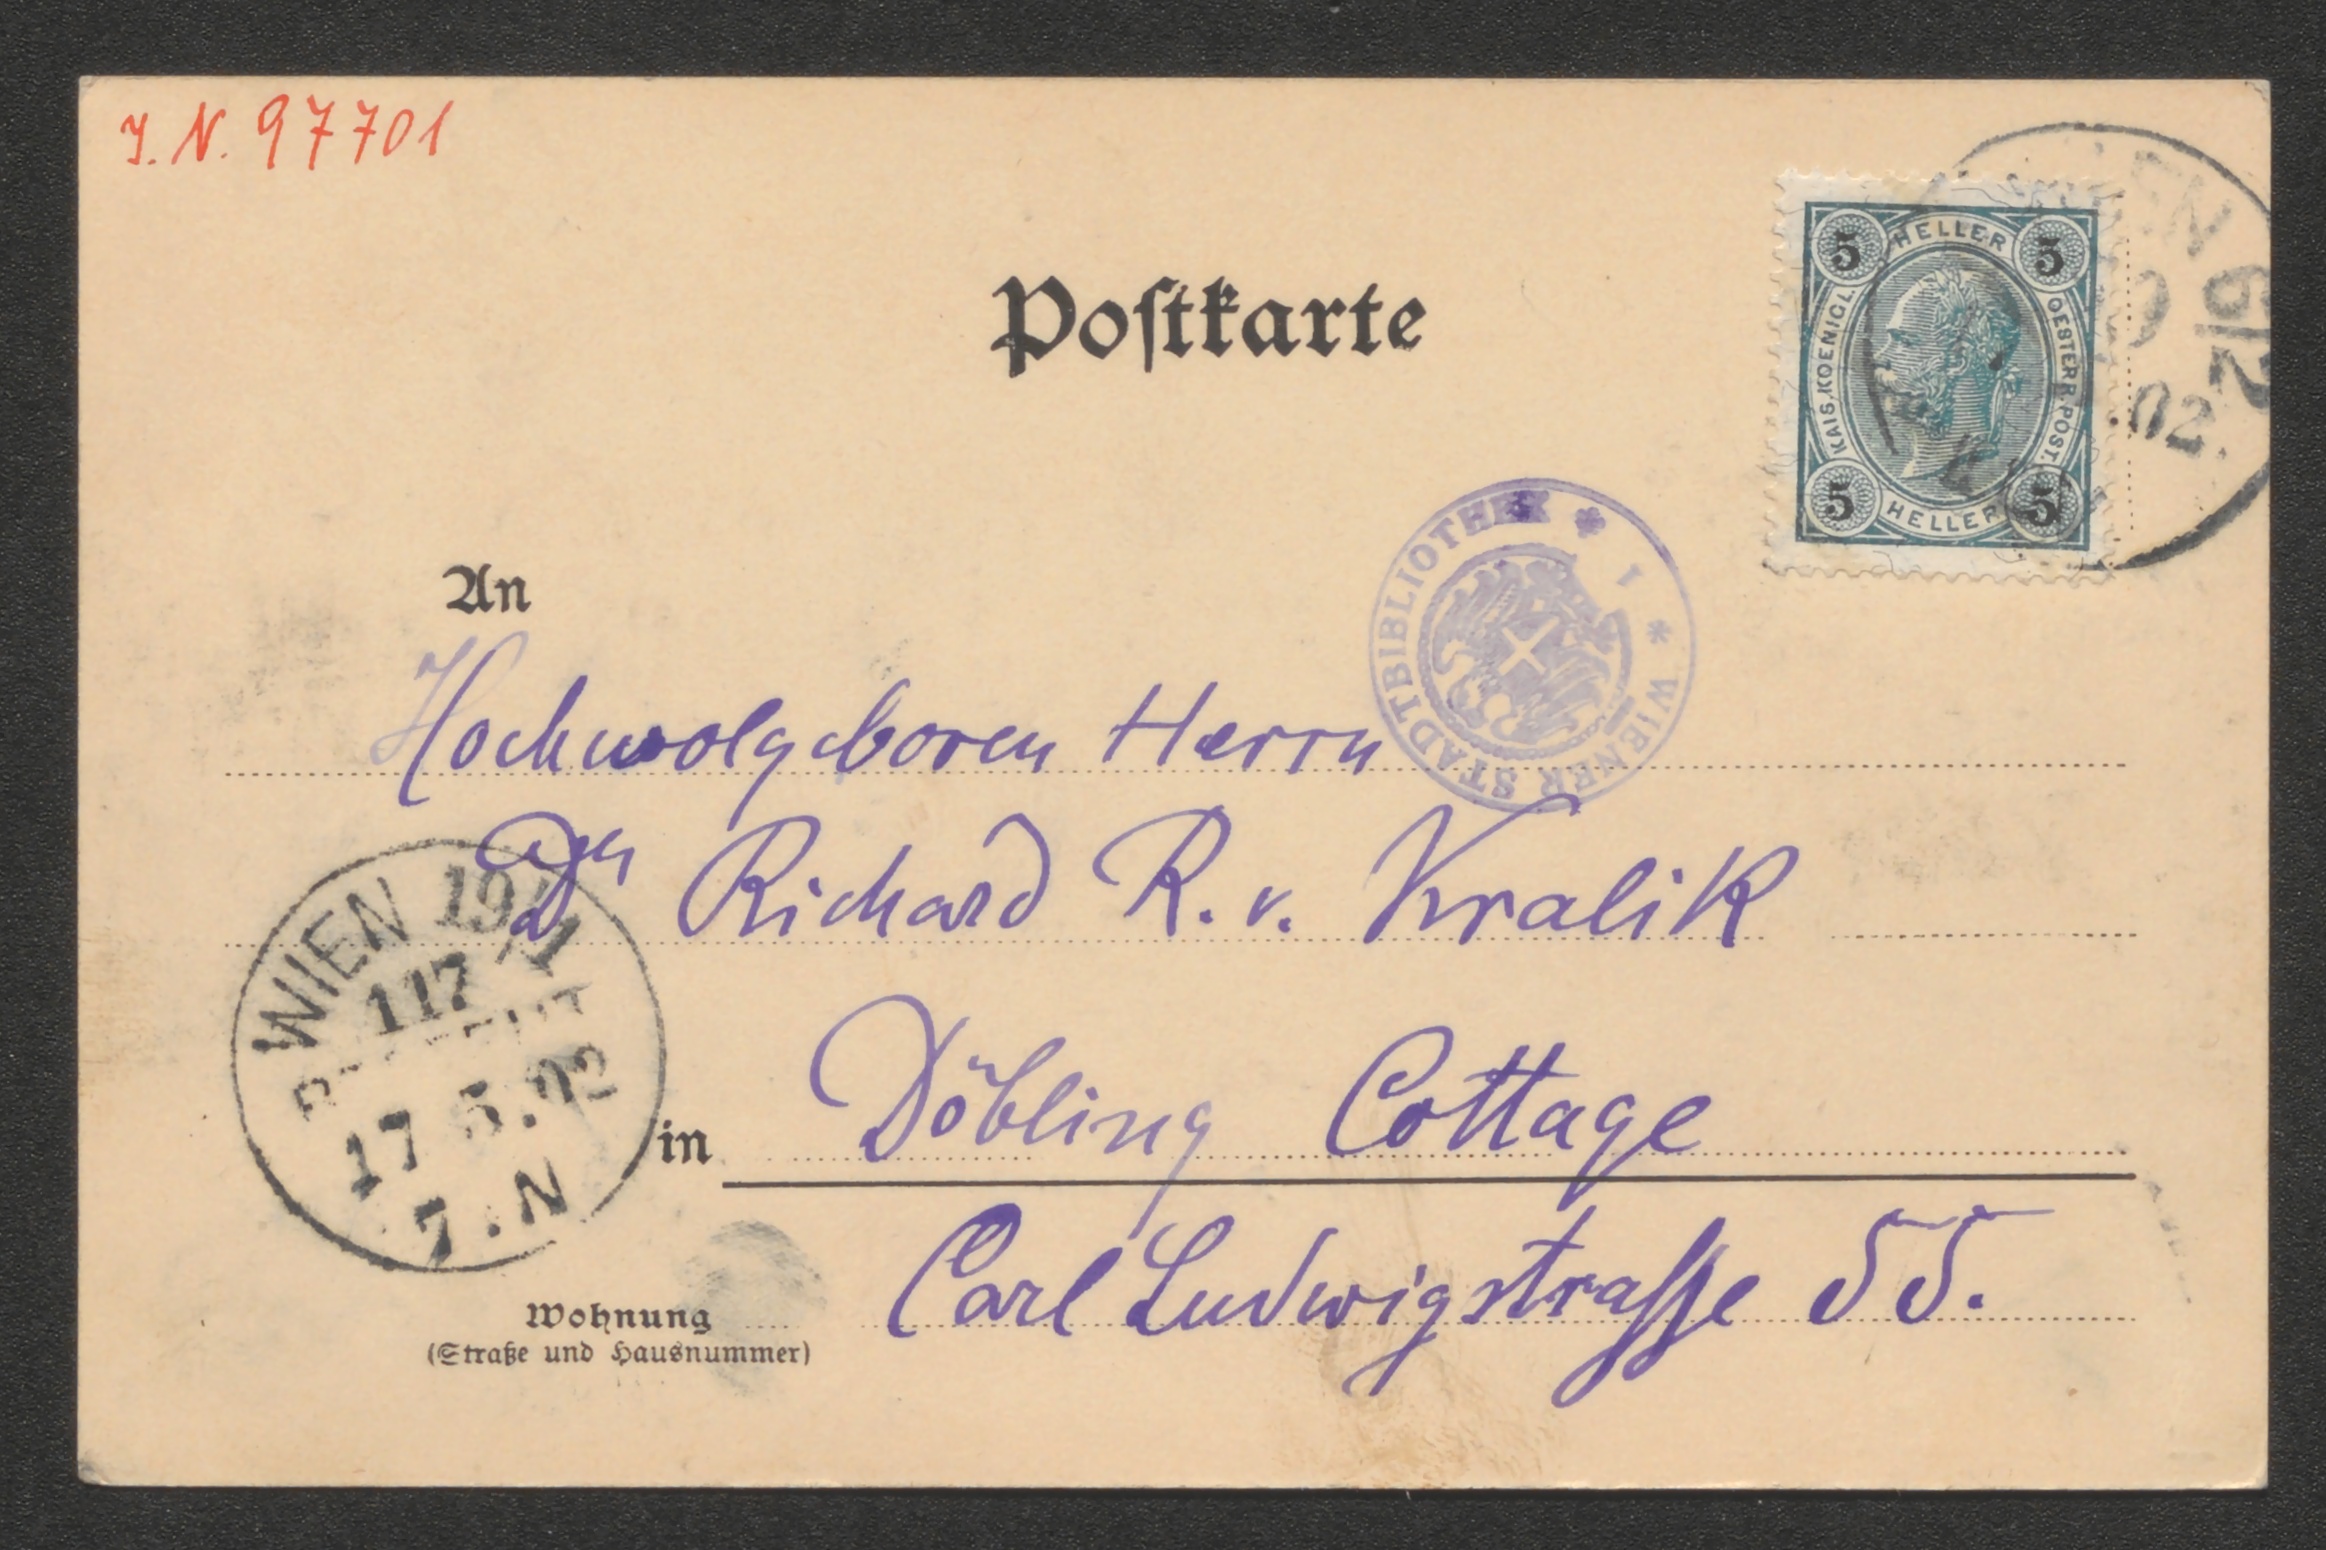 J. N. 97701
Postkarte
5 HELLER 5
KAIS. KOENIGL.
OESTERR. POST.
5 HELLER 5
6/2
02
WIENER STADTBIBLIOTHEK * 1 *
An
Hochwolgeboren Herrn
Dr Richard R. v. Kralik
WIEN 19/1
117
17 5.02
7.N
in Döbling Cottage
Carl Ludwigstrasse 55.
Wohnung
(Straße und Hausnummer)